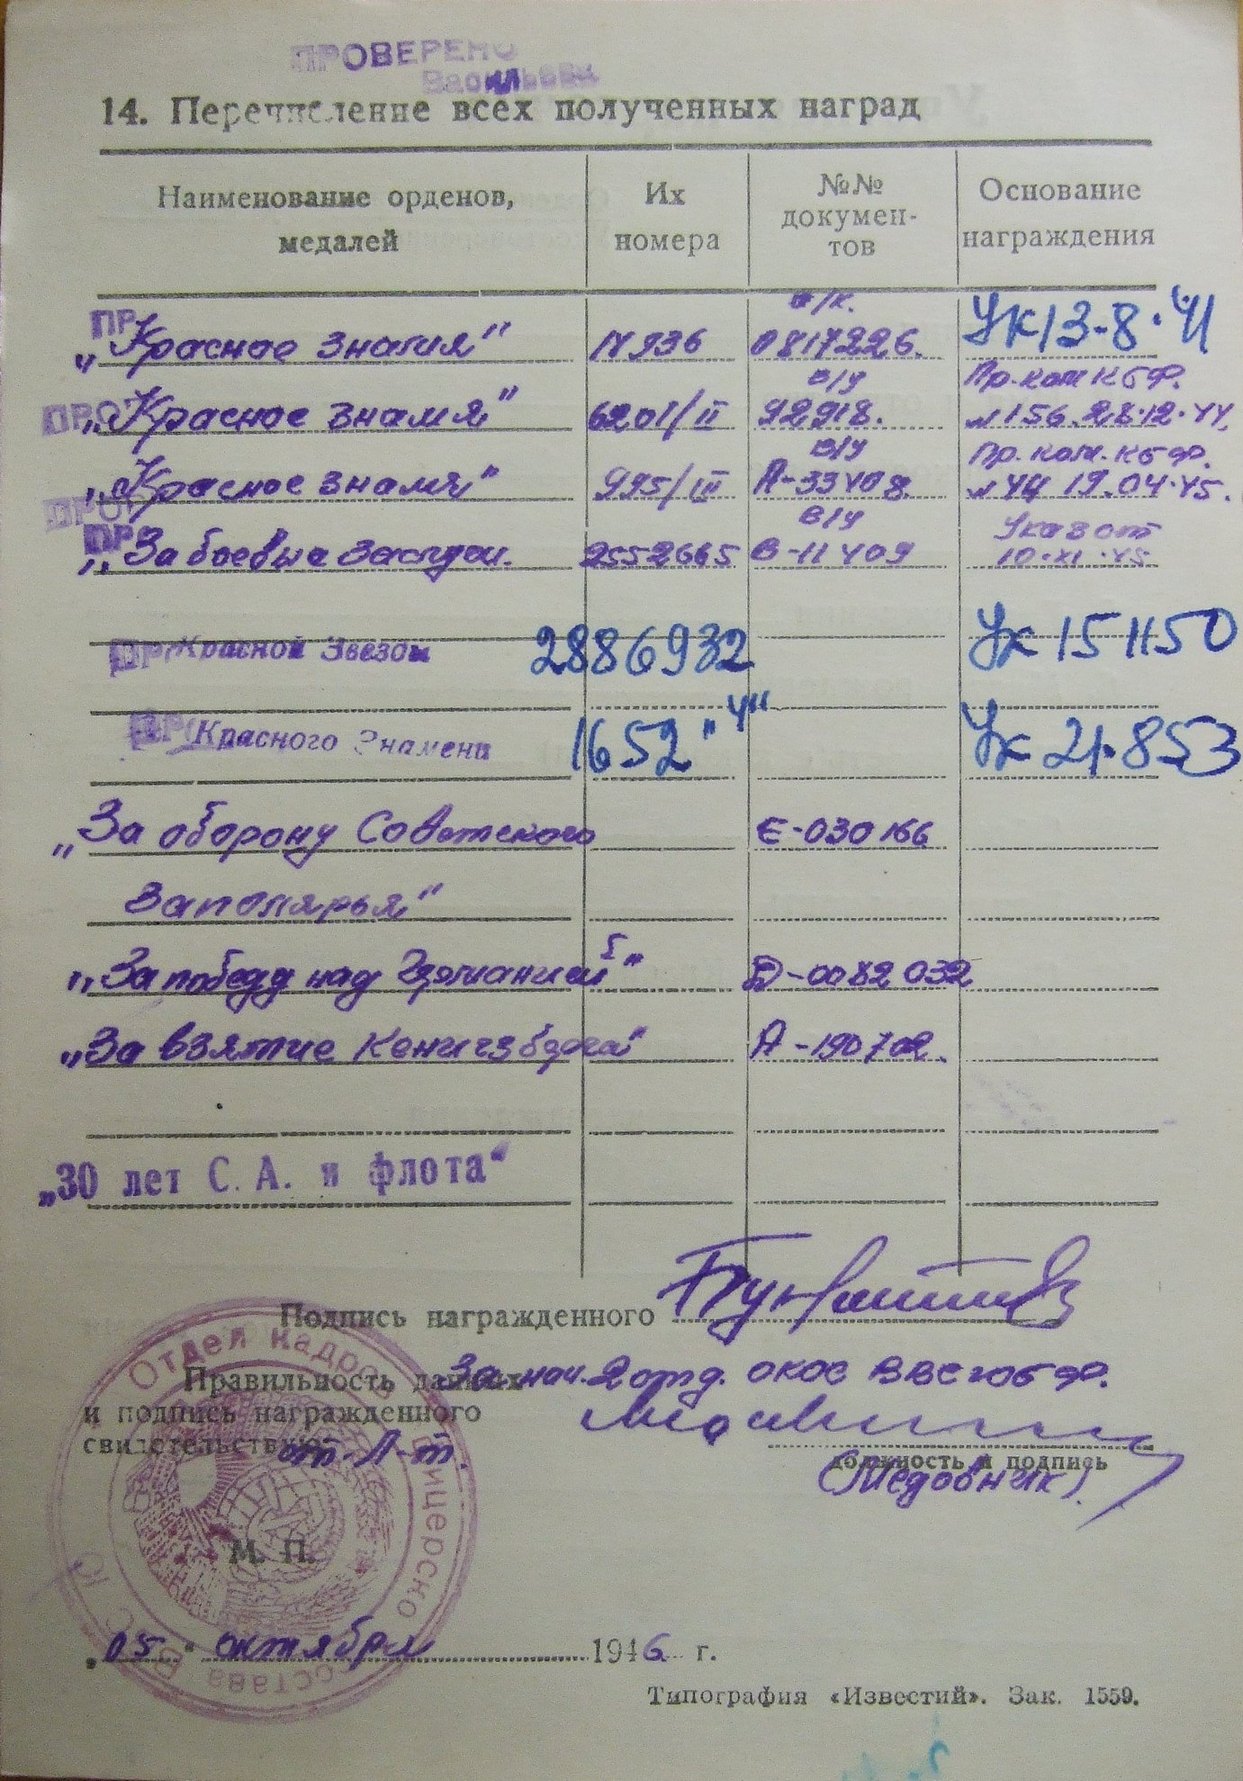 ПРОВЕРЕНО
Васильева
14. Перечисление всех полученных наград
Наименование орденов, медалей
Их номера
№№ докумен-тов
Основание награждения
ПР
в/к.
„Красное знамя" N 936 0817226. Ук 13-8.41
в/у Пр. ком КБФ.
„Красное знамя" 6201/II 92918. №156. 28.12.44.
в/у Пр. ком. КБФ.
„Красное знамя" 995/III А-33408 №44 19.04.45.
в/у Указ от
„За боевые заслуги. 2552665 В-11409 10.XI.45
Красной Звезды 2886932 Ук 151150
Красного Знамени 1652 „4" Ук 21.853
„За оборону Советского Е-030166
Заполярья"
„За победу над Германией" Д-0082032
„За взятие Кенигзберга" А-190702.
„30 лет С. А. и флота"
Подпись награжденного
Правильность данных Зам. нач. 2 отд. ОКОС ВВС ЮБФ.
и подпись награжденного
свидетельствую
ст. Л-т.
должность и подпись
(Медовник).
М. П.
Отдел кадров офицерско состава ВВС
„05" октября 1946 г.
Типография «Известий». Зак. 1559.